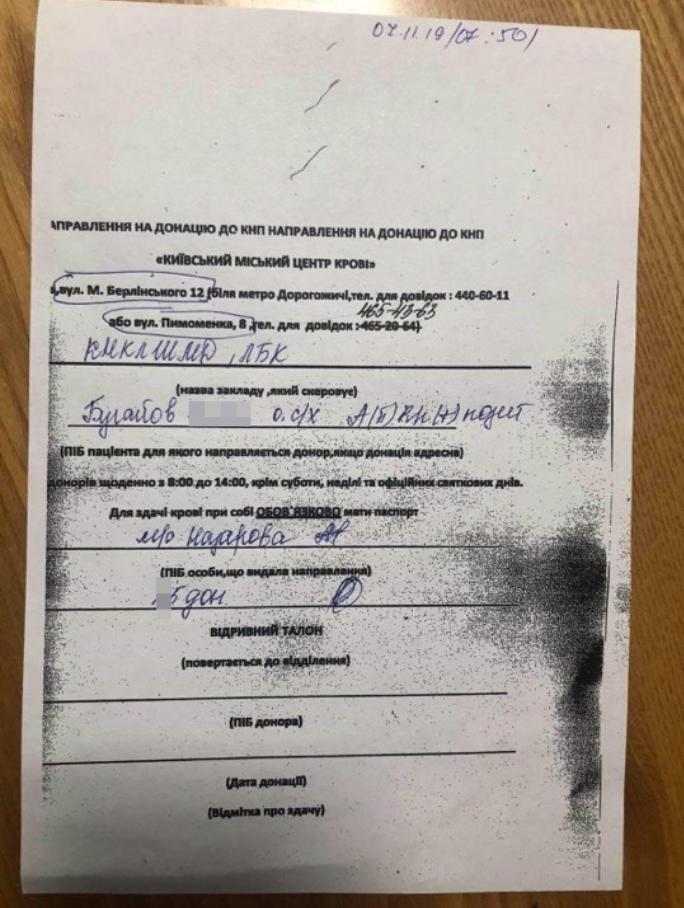 07.11.19/07:50/
АПРАВЛЕННЯ НА ДОНАЦІЮ ДО КНП НАПРАВЛЕННЯ НА ДОНАЦІЮ ДО КНП
«КИЇВСЬКИЙ МІСЬКИЙ ЦЕНТР КРОВІ»
,вул. М. Берлінського 12 (біля метро Дорогожичі,тел. для довідок : 440-60-11
465-43-63
або вул. Пимоменка, 8 ,тел. для довідок :465-20-64)
КМКЛШМД, ЛБК
(назва закладу ,який скеровує)
Бугайов о. с/х А(ІІ) Rh(+) позит
(ПІБ пацієнта для якого направляється донор,якщо донація адресна)
донорів щоденно з 8:00 до 14:00, крім суботи, неділі та офіційних святкових днів.
Для здачі крові при собі ОБОВ`ЯЗКОВО мати паспорт
Назарова
(ПІБ особи,що видала направлення)
5 дон
ВІДРИВНИЙ ТАЛОН
(повертається до відділення)
(ПІБ донора)
(Дата донації)
(Відмітка про здачу)